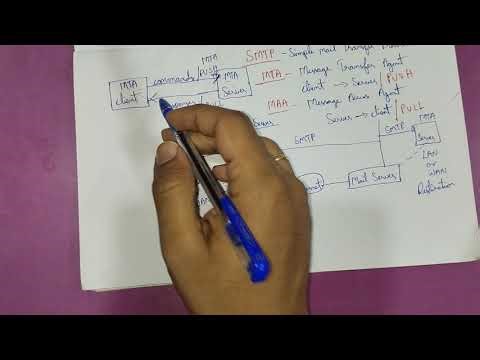 SMTP - Simple Mail Transfer
MTA - Message Transfer Agent
client → Server PUSH
MAA - Message Access Agent
Server → client PULL
MTA
client
commands
MTA
PUSH
MTA
Server
Server
SMTP
SMTP
MTA
Server
Mail Server
LAN
or
WAN